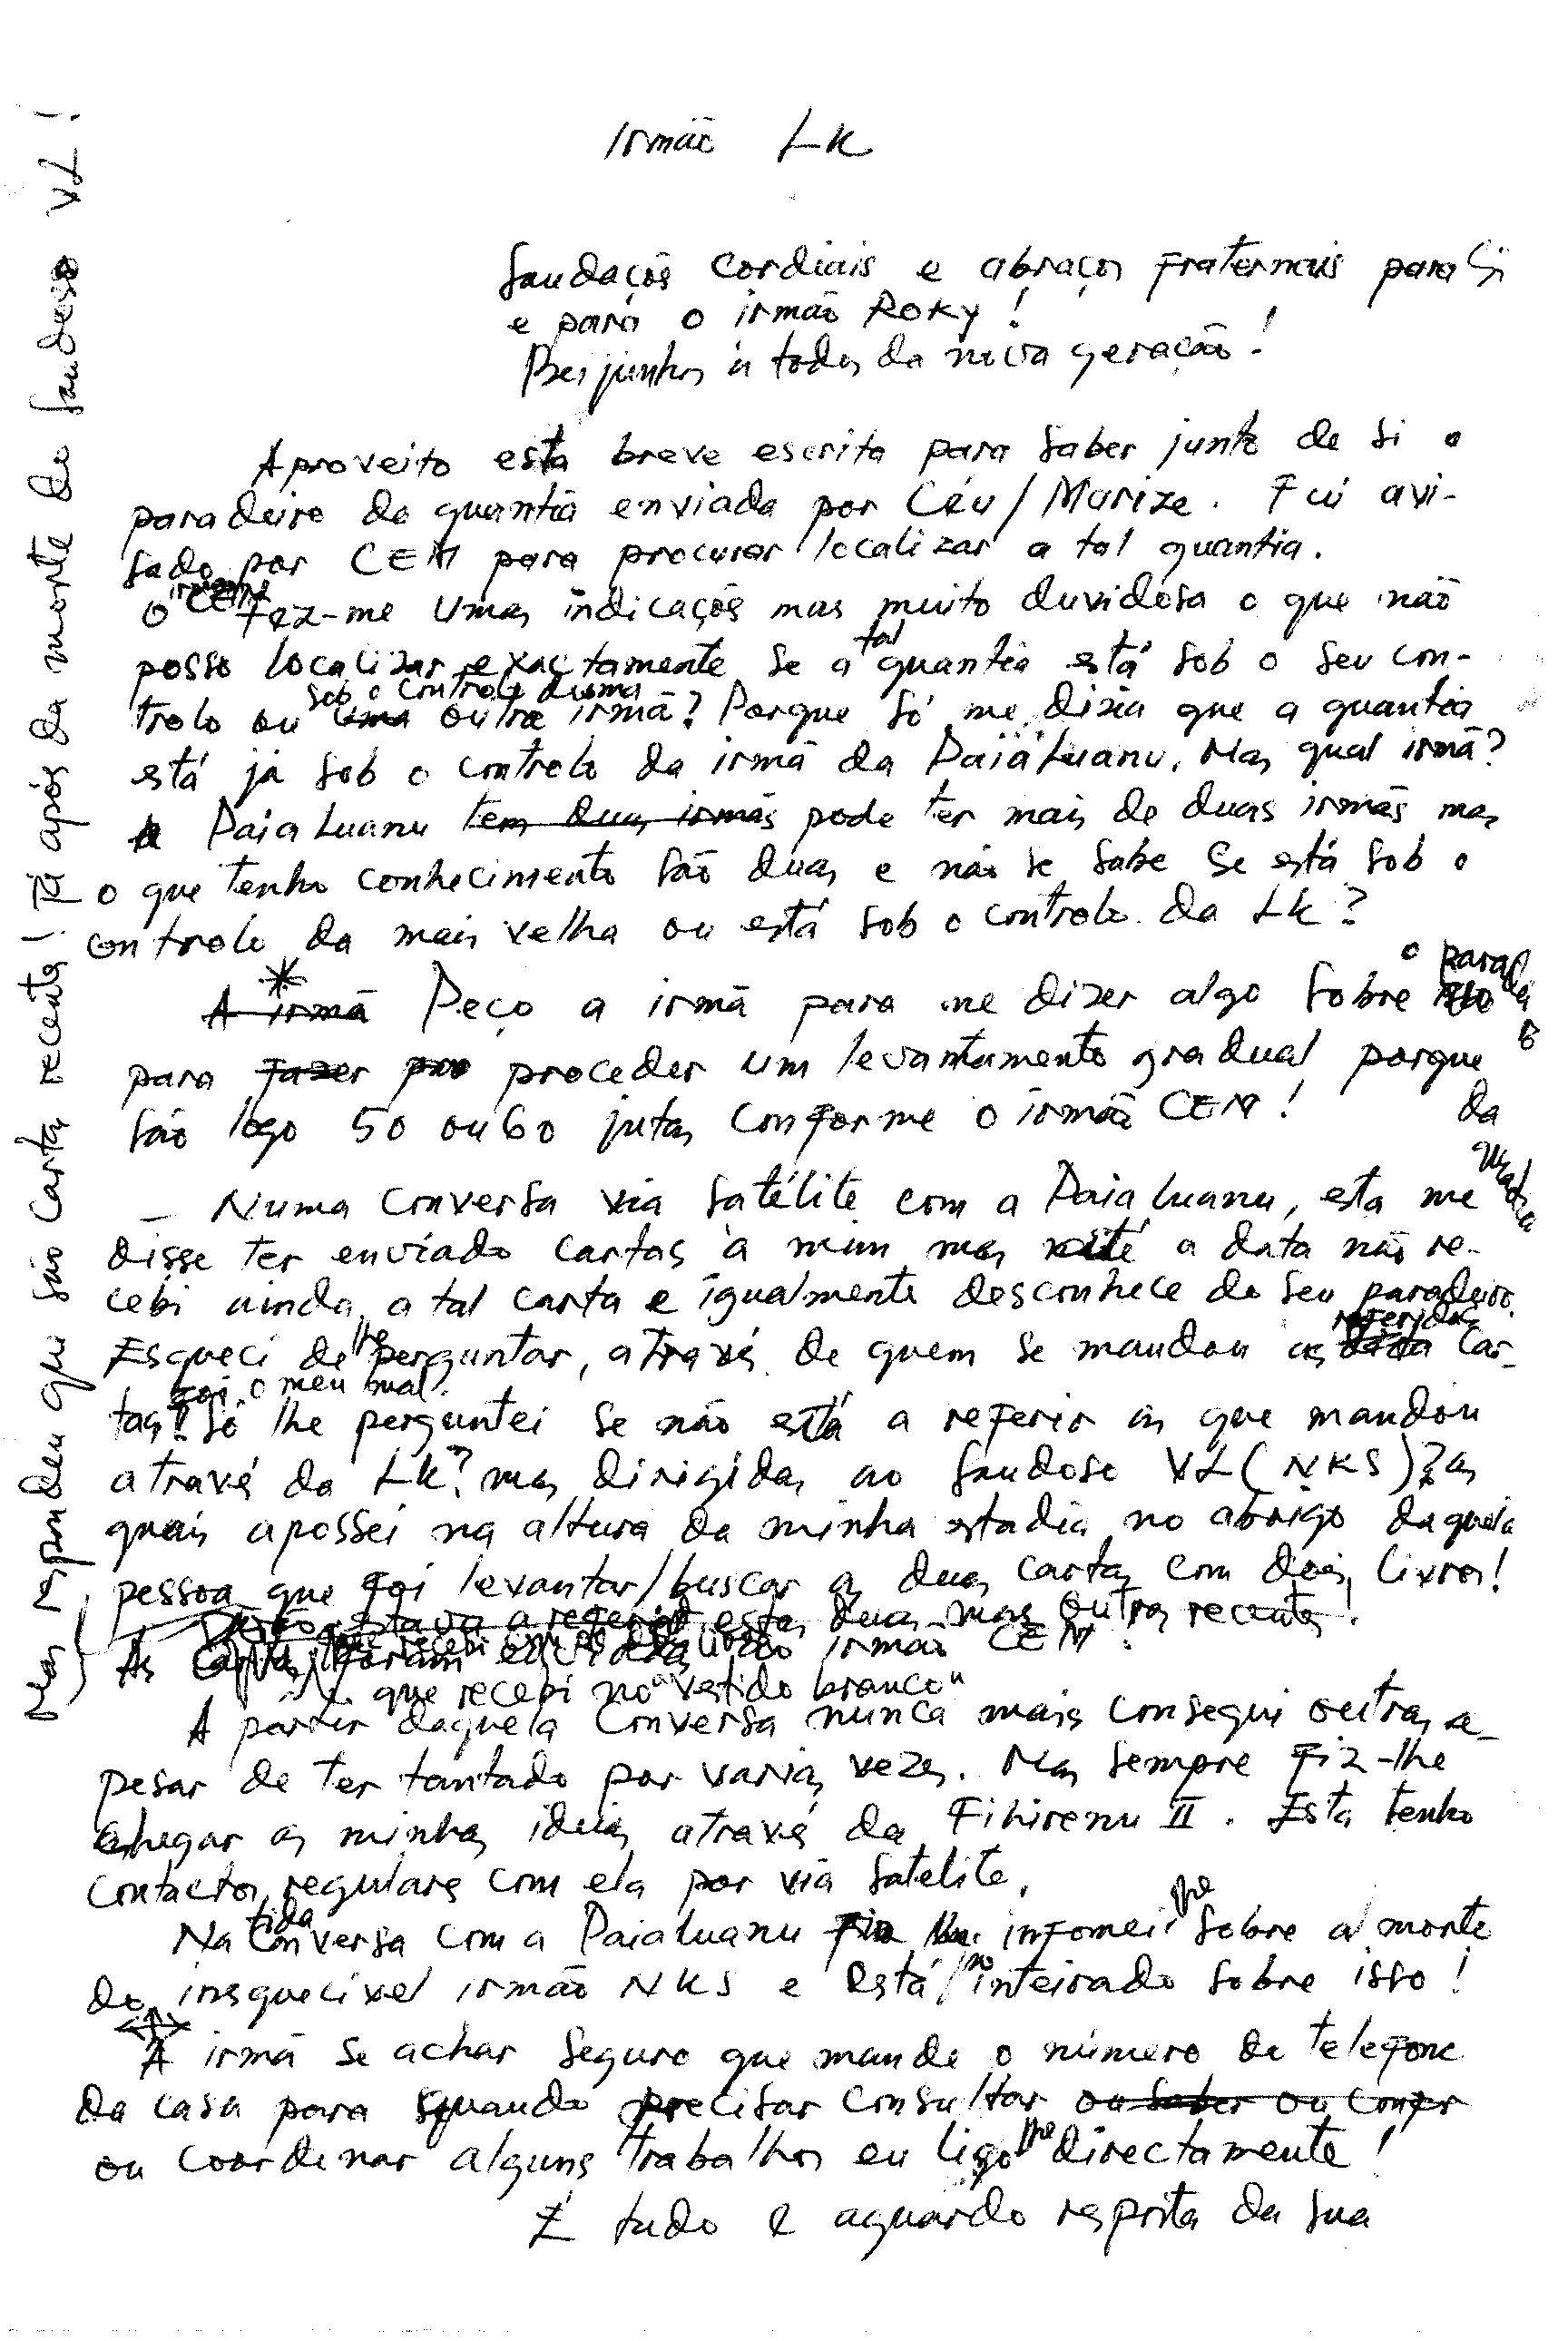 Irmão LK
Saudações cordiais e abraços fraternais para Si
e para o irmão Roky!
Beijinhos à todos da nova geração!
Aproveito esta breve escrita para saber junto de si o
paradeiro da quantia enviada por Céu/Marize. Fui avi-
sado por CEM para procurar localizar a tal quantia.
O irmão CEM fez-me umas indicações mas muito duvidosa o que não
posso localizar exactamente se a tal quantia está sob o seu con-
trolo ou uma sob o controlo duma outra irmã? Porque só me dizia que a quantia
está já sob o controlo da irmã da Paialuanu. Mas qual irmã?
A Paialuanu tem duas irmãs pode ter mais de duas irmãs mas
o que tenho conhecimento são duas e não se sabe se está sob o
controlo da mais velha ou está sob o controlo da LK?
A irmã * Peço a irmã para me dizer algo sobre o paradeiro da quantia
para fazer proceder um levantamento gradual porque
são logo 50 ou 60 jutas conforme o irmão CEM!
– Numa conversa via satélite com a Paialuanu, esta me
disse ter enviado cartas à mim mas até a data não re-
cebi ainda a tal carta e igualmente desconhece do seu paradeiro.
Esqueci de lhe perguntar, através de quem se mandou as referidas car-
tas! foi o meu mal. Só lhe perguntei se não está a referir as que mandou
através da LK? mas dirigidas ao saudoso VL (NKS)? as
quais apossei na altura da minha estadia no abrigo daquela
pessoa que foi levantar/buscar as duas cartas com dois livros!
estava a referir estas duas mas outras recentes!
As irmão CEM
que recebi no "vestido branco"
A partir daquela conversa nunca mais consegui outras a-
pesar de ter tantado por varias vezes. Mas sempre fiz-lhe
chegar as minhas ideias através da Fihirenu II. Esta tenho
contactos regulares com ela por via satelite.
Na conversa tida com a Paialuanu infomei-lhe sobre a morte
do inesquecível irmão NKS e está inteirado sobre isso!
A irmã se achar seguro que mande o número de telefone
da casa para quando precisar consultar ou saber ou confer
ou coordenar alguns trabalhos eu ligo lhe directamente!
É tudo e aguardo resposta da sua
Mas respondeu que são cartas recentes! Já após da morte do saudoso VL!